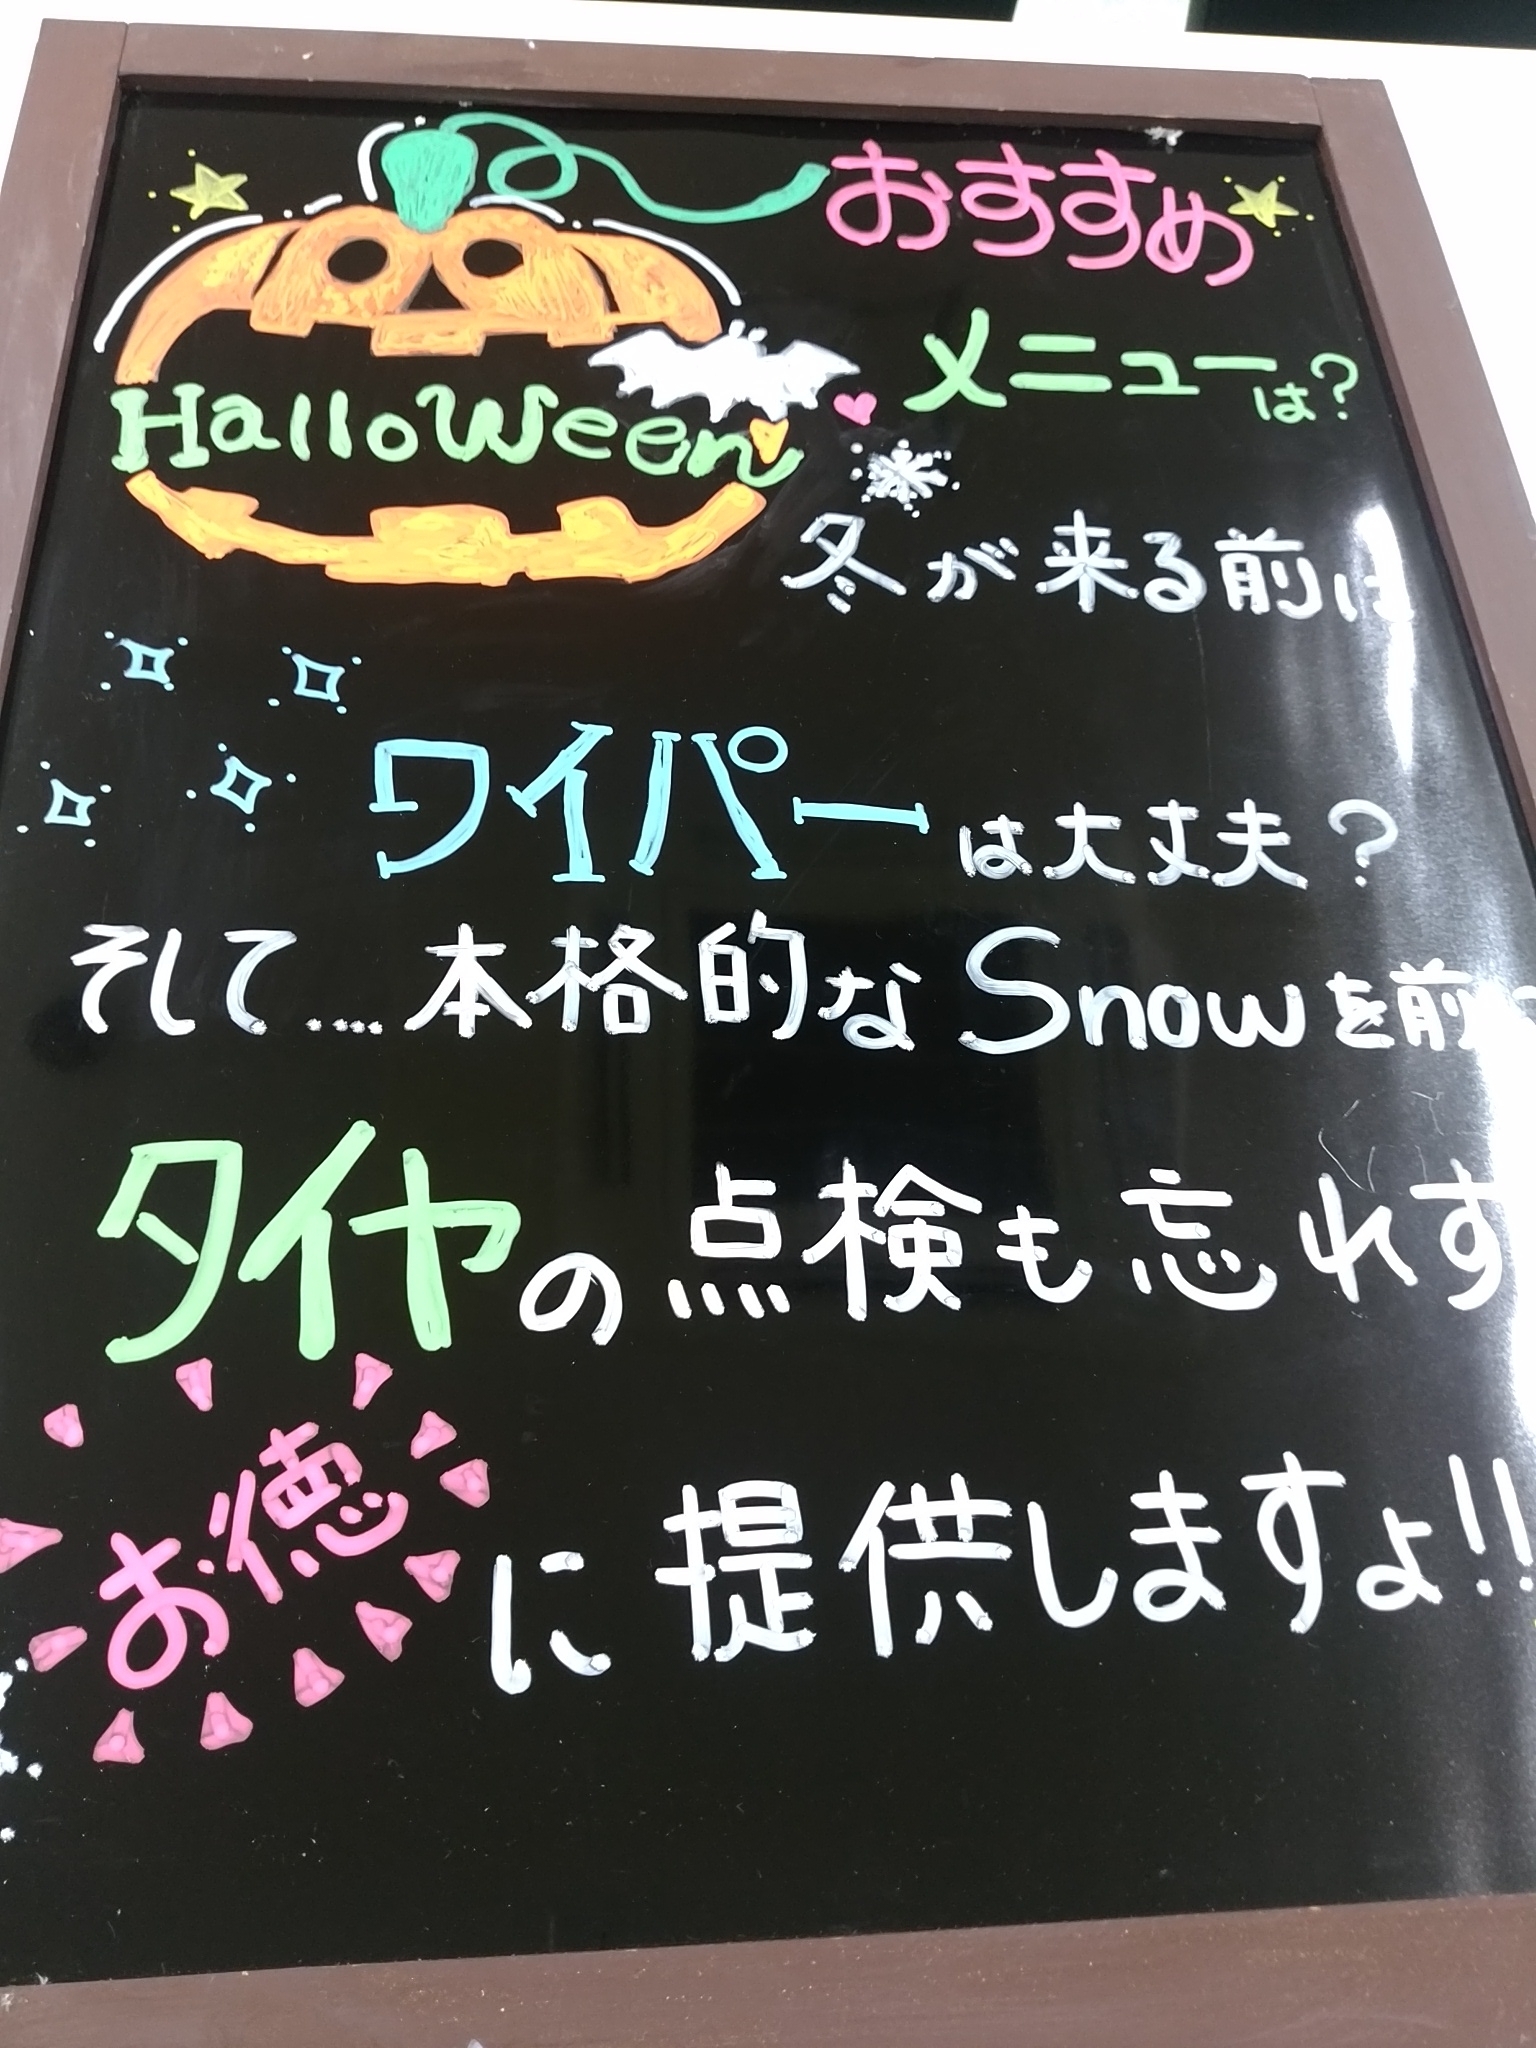 おすすめ
メニューは?
HalloWeen
冬が来る前は
ワイパーは大丈夫?
そして....本格的なSnowを前
タイヤの点検も忘れす
お徳に提供しますょ!!